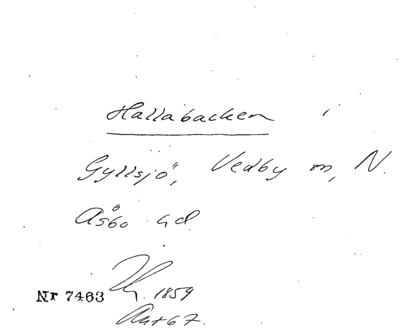 Hallabacken i
Gyllsjö, Vedby sn, N.
Åsbo hd.
1859
Nr 7463